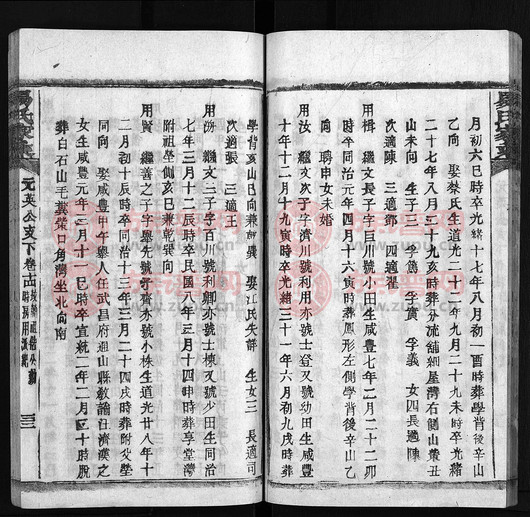 月初六巳時卒光緒十七年八月初一酉時葬學背後辛山
乙向 娶樊氏生道光二十二年九月二十九未時卒光緒
二十七年八月二十九亥時葬分流舖細屋灣右側山癸丑
山未向 生子三 學篤 學廣 學義 女四長適陳
次適陳 三適鄧 四適翟
用楫 繼文長子字巨川號小田生咸豐七年二月二十二卯
時卒同治元年四月十六寅時葬鳳形左側學背後辛山乙
向 聘申女未婚
用汝 繼文次子字濟川號利用亦號士登又號幼田生咸豐
十年十二月二十九寅時卒光緒三十一年六月初九戌時葬
學背亥山巳向兼 娶江氏失詳 生女三 長適司
次適張 三適王
用汾 繼文三子字百川號利卿亦號士棟又號少田生同治
七年三月十二辰時卒民國八年三月十四申時葬享堂灣
附祖塋側亥巳兼乾巽向
用賢 繼善之子字舉先號子齋亦號小株生道光廿八年十
二月初十辰時卒同治十三年三月二十四戌時葬附父塋
同向 娶咸豐甲午舉人任武昌府通山縣教諭汪濟漢之
女生咸豐元年三月十一巳時卒宣統二年二月十時脫
葬白石山毛糞 口角灣坐北向南
元英公支下卷